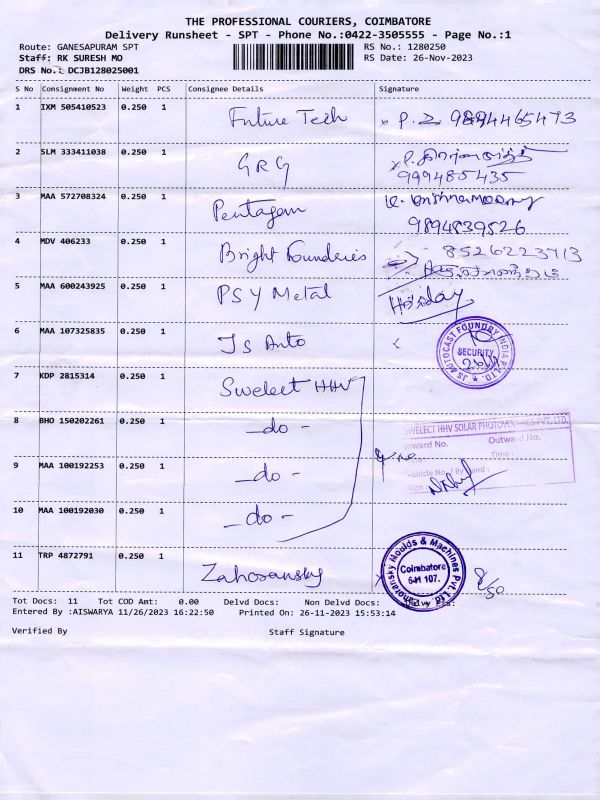 THE PROFESSIONAL COURIERS, COIMBATORE
Delivery Runsheet - SPT - Phone No.:0422-3505555 - Page No.:1
Route: GANESAPURAM SPT
RS No.: 1280250
Staff: RK SURESH MO
RS Date: 26-Nov-2023
DRS No.: DCJB128025001
S No Consignment No Weight PCS Consignee Details Signature
1 IXM 505410523 0.250 1 Future Tech P. 9894465473
2 SLM 333411038 0.250 1 GRG
999485435
3 MAA 572708324 0.250 1 Pentagam
9894839526
4 MDV 406233 0.250 1 Bright Founderies 8526223713
5 MAA 600243925 0.250 1 PSY Metal Holiday
6 MAA 107325835 0.250 1 JS Auto
JS AUTOCAST FOUNDRY INDIA P LTD.
SECURITY
7 KDP 2815314 0.250 1 Swelect HHV
8 BHO 150202261 0.250 1 -do-
SWELECT HHV SOLAR PHOTOVOLTAICS PVT. LTD.
Inward No. Outward No.
Time :
9 MAA 100192253 0.250 1 -do-
Vehicle No. / By Hand :
Sign :
10 MAA 100192030 0.250 1 -do-
11 TRP 4872791 0.250 1 Zahoransky
Zahoransky Moulds & Machines Pvt. Ltd.
Coimbatore
641 107.
8/50
Tot Docs: 11 Tot COD Amt: 0.00 Delvd Docs: Non Delvd Docs:
Entered By :AISWARYA 11/26/2023 16:22:50 Printed On: 26-11-2023 15:53:14
Verified By Staff Signature